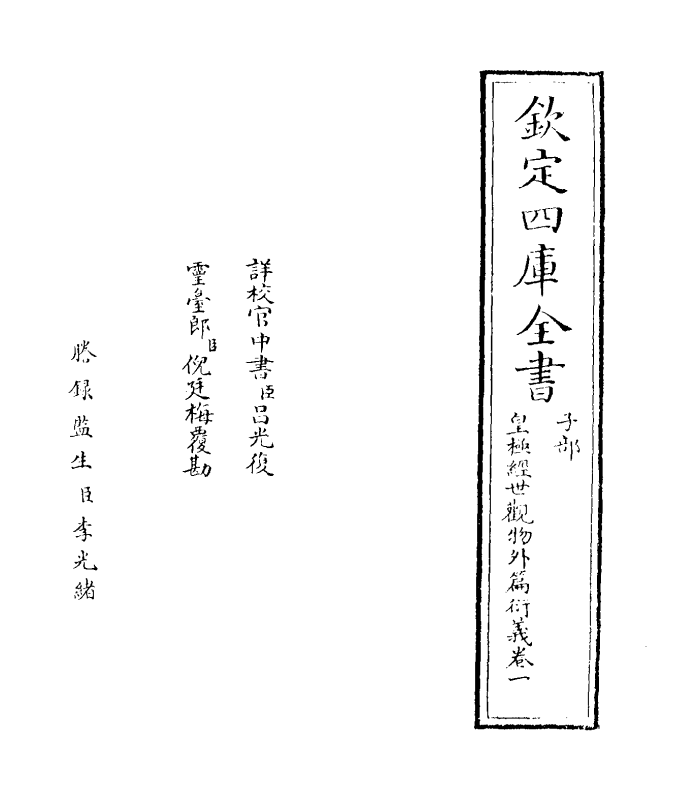 欽定四庫全書
子部
皇極經世觀物外篇衍義卷一
詳校官中書臣吕光復
靈臺郎臣倪廷梅覆勘
謄録監生臣李光緒